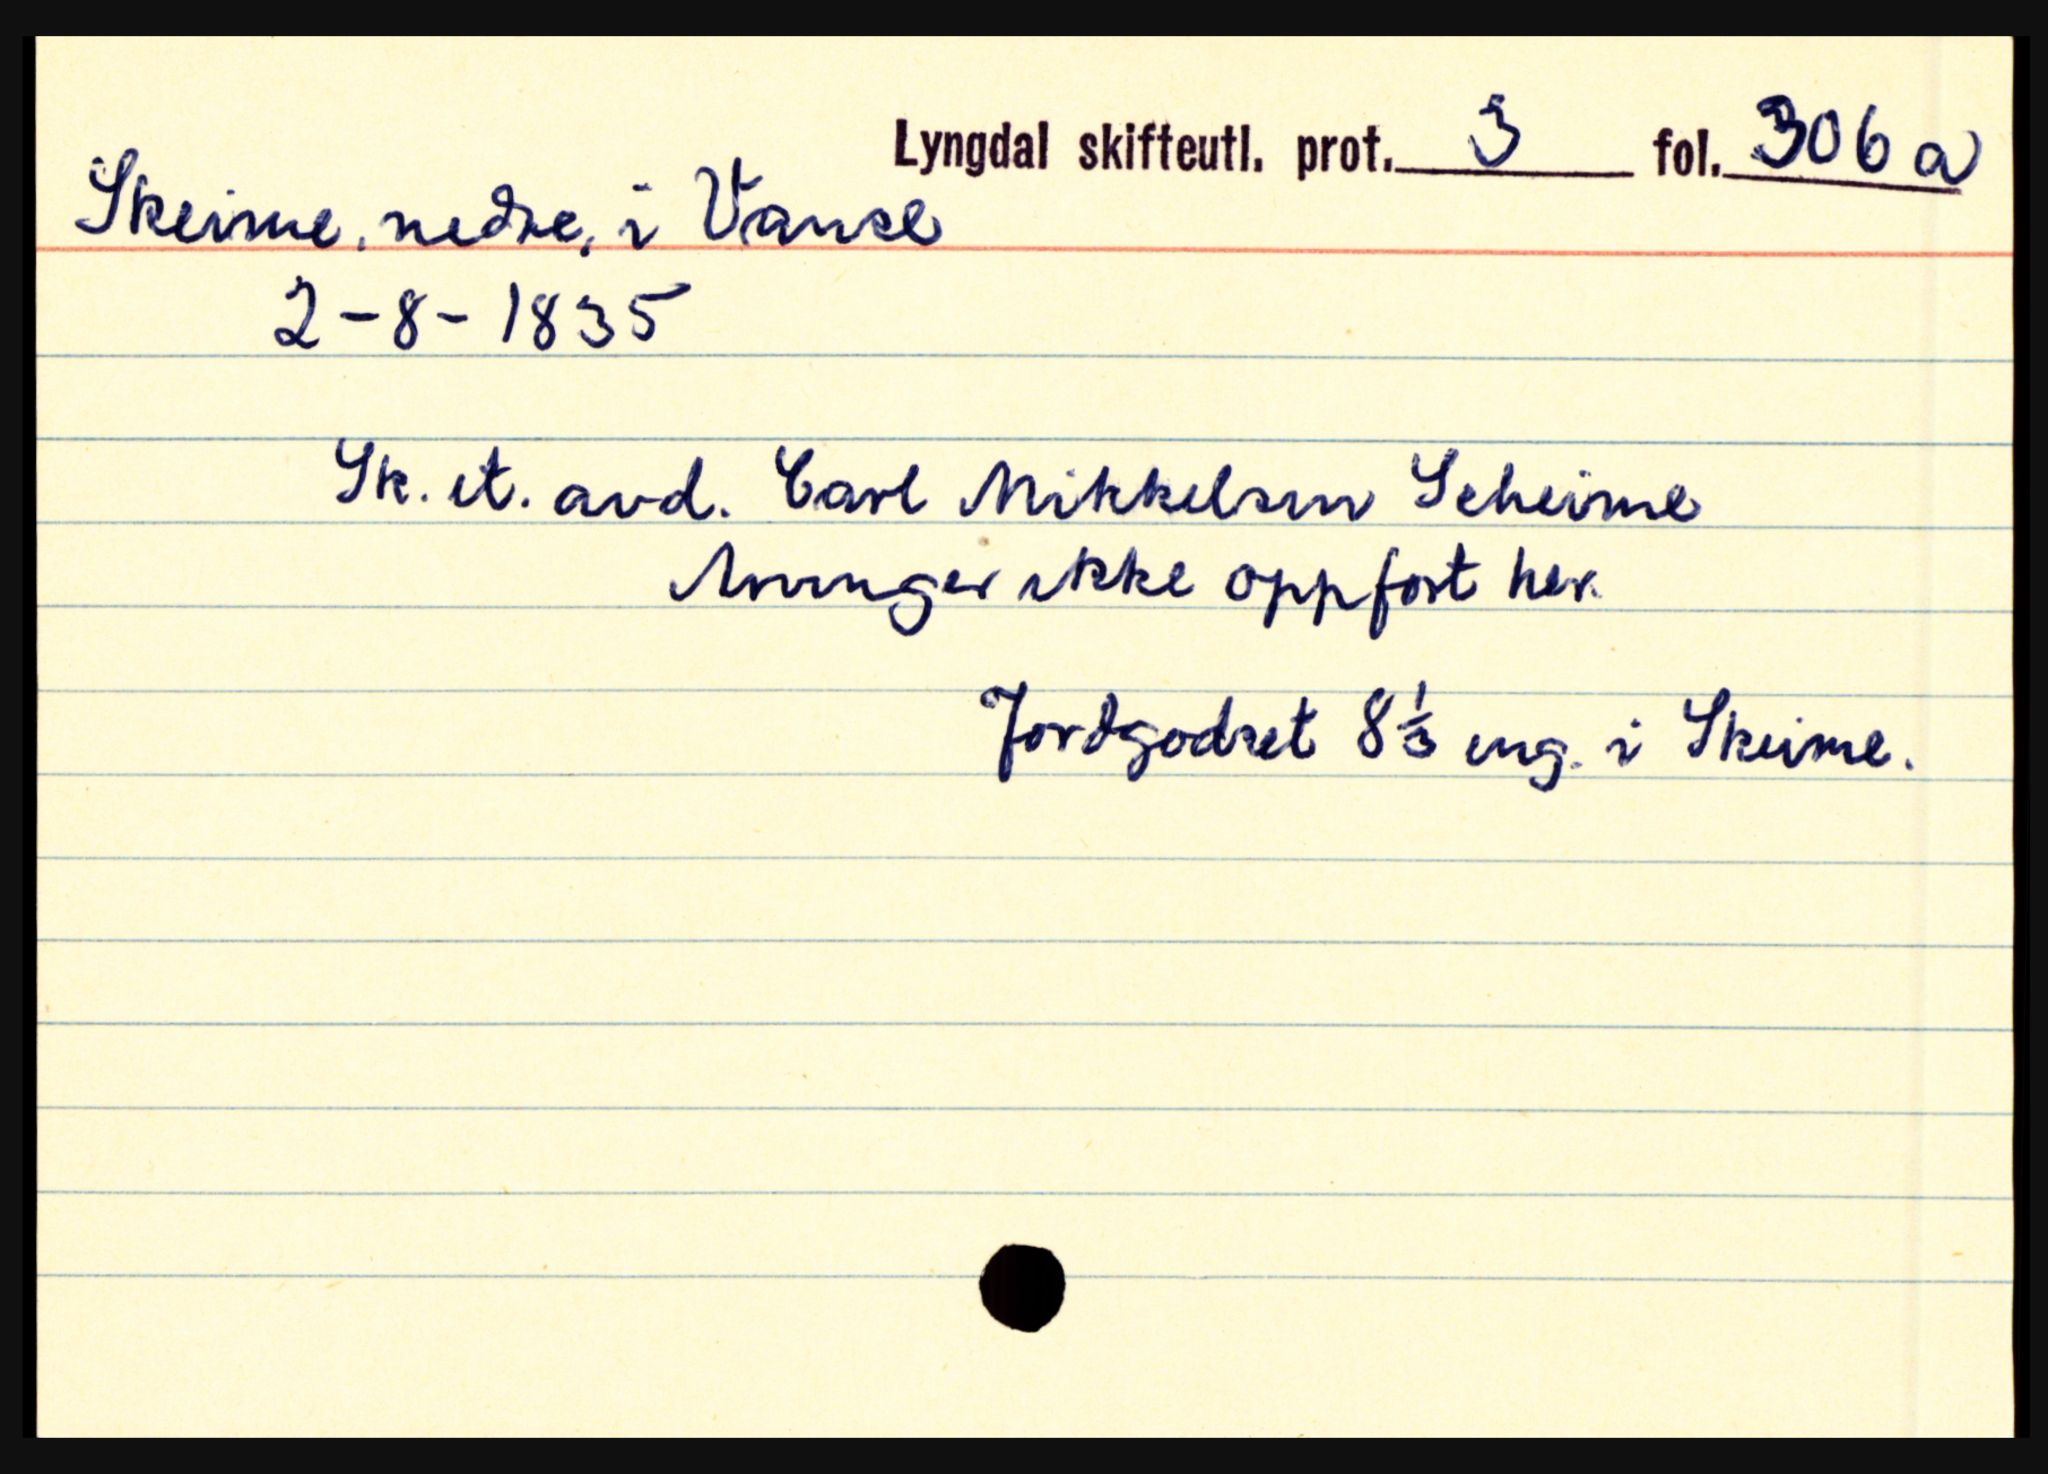 Lyngdal skifteutl. prot. 3 fol. 306 a
Skeime, nedre, i Vanse
2-8-1835
Sk. et. avd. Carl Mikkelsen Scheime
Arvinger ikke oppført her.
Jordgodset 8 1/3 eng. i Skeime.